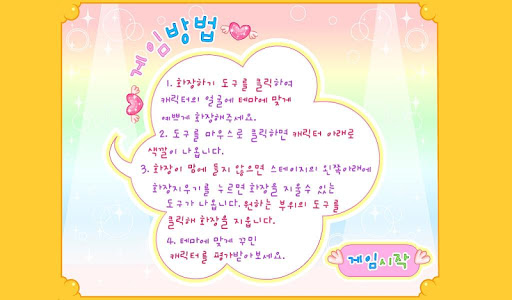 게임방법
1. 화장하기 도구를 클릭하여
캐릭터의 얼굴에 테마에 맞게
예쁘게 화장해주세요.
2. 도구를 마우스로 클릭하면 캐릭터 아래로
색깔이 나옵니다.
3. 화장이 맘에 들지 않으면 스테이지의 왼쪽아래에
화장지우기를 누르면 화장을 지울수 있는
도구가 나옵니다. 원하는 부위의 도구를
클릭해 화장을 지웁니다.
4. 테마에 맞게 꾸민
캐릭터를 평가받아보세요.
게임시작